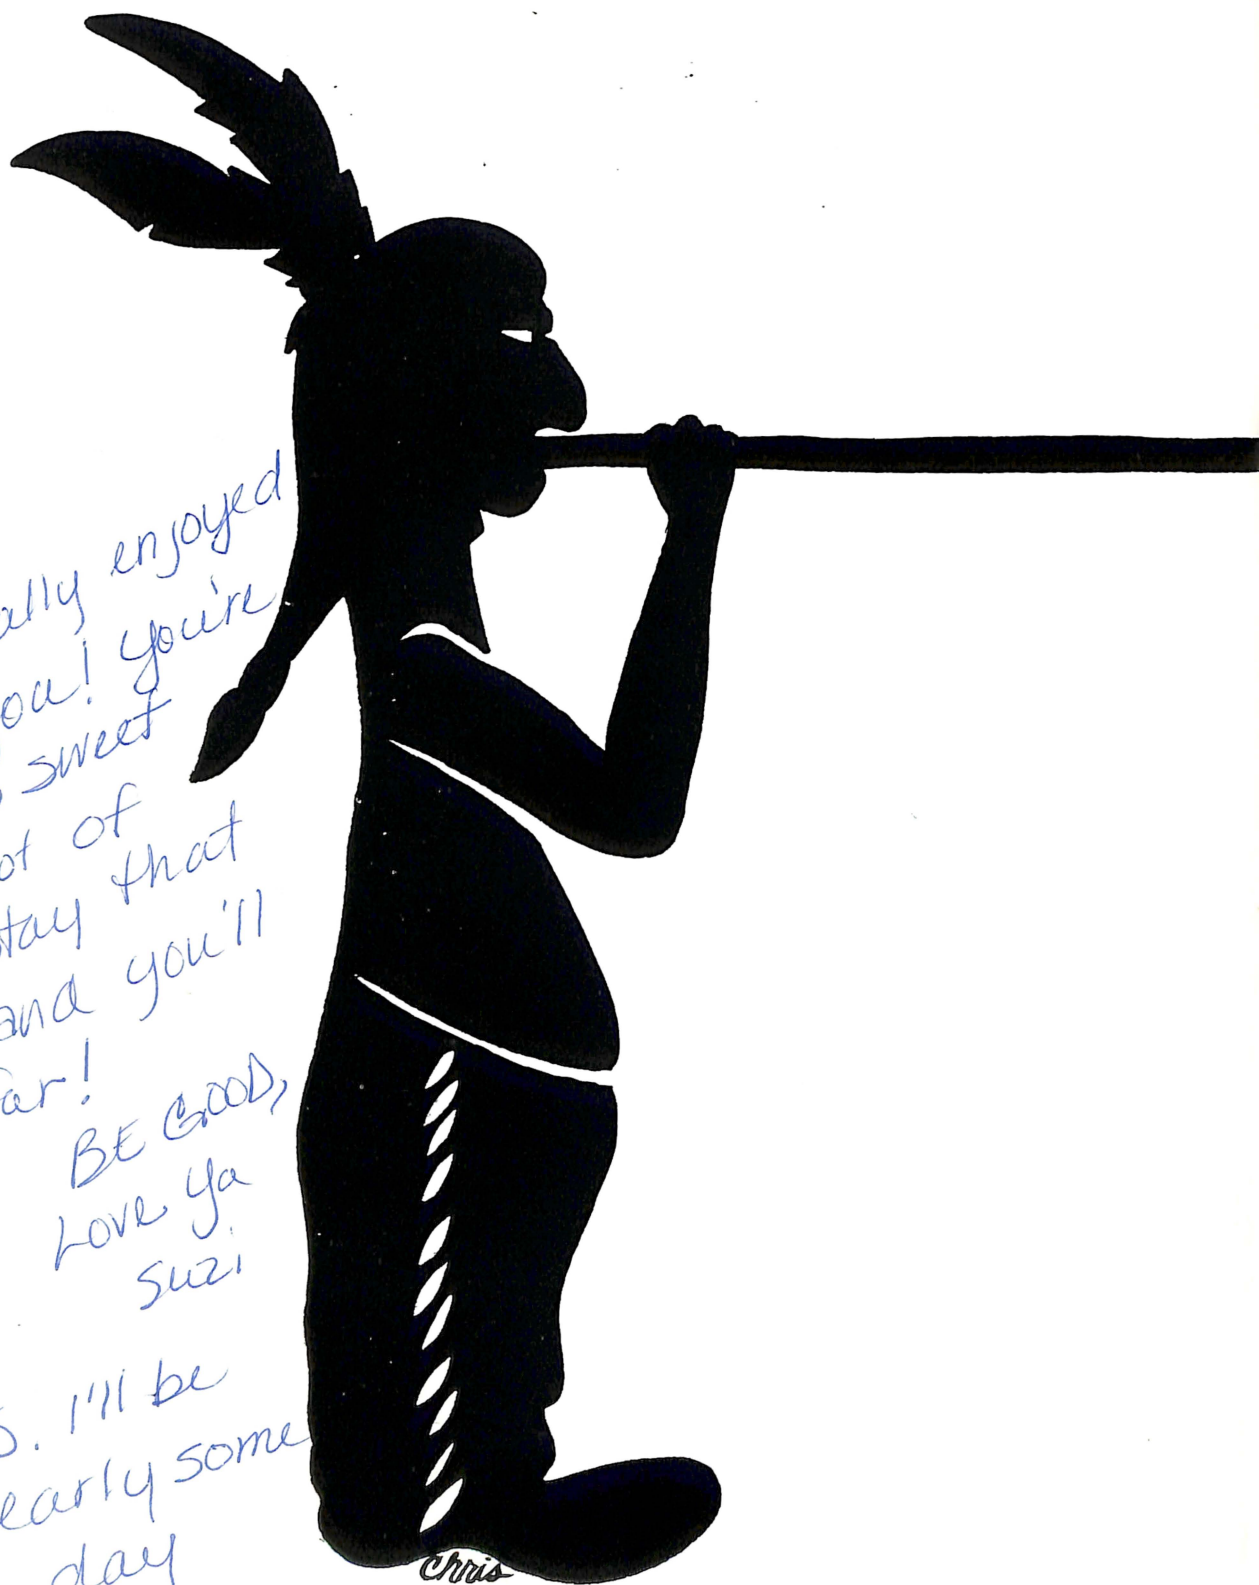 ally enjoyed
ou! you're
, sweet
ot of
tay that
and you'll
far!
BE GOOD,
Love Ya
Suzi
S. I'll be
early some
day
Chris